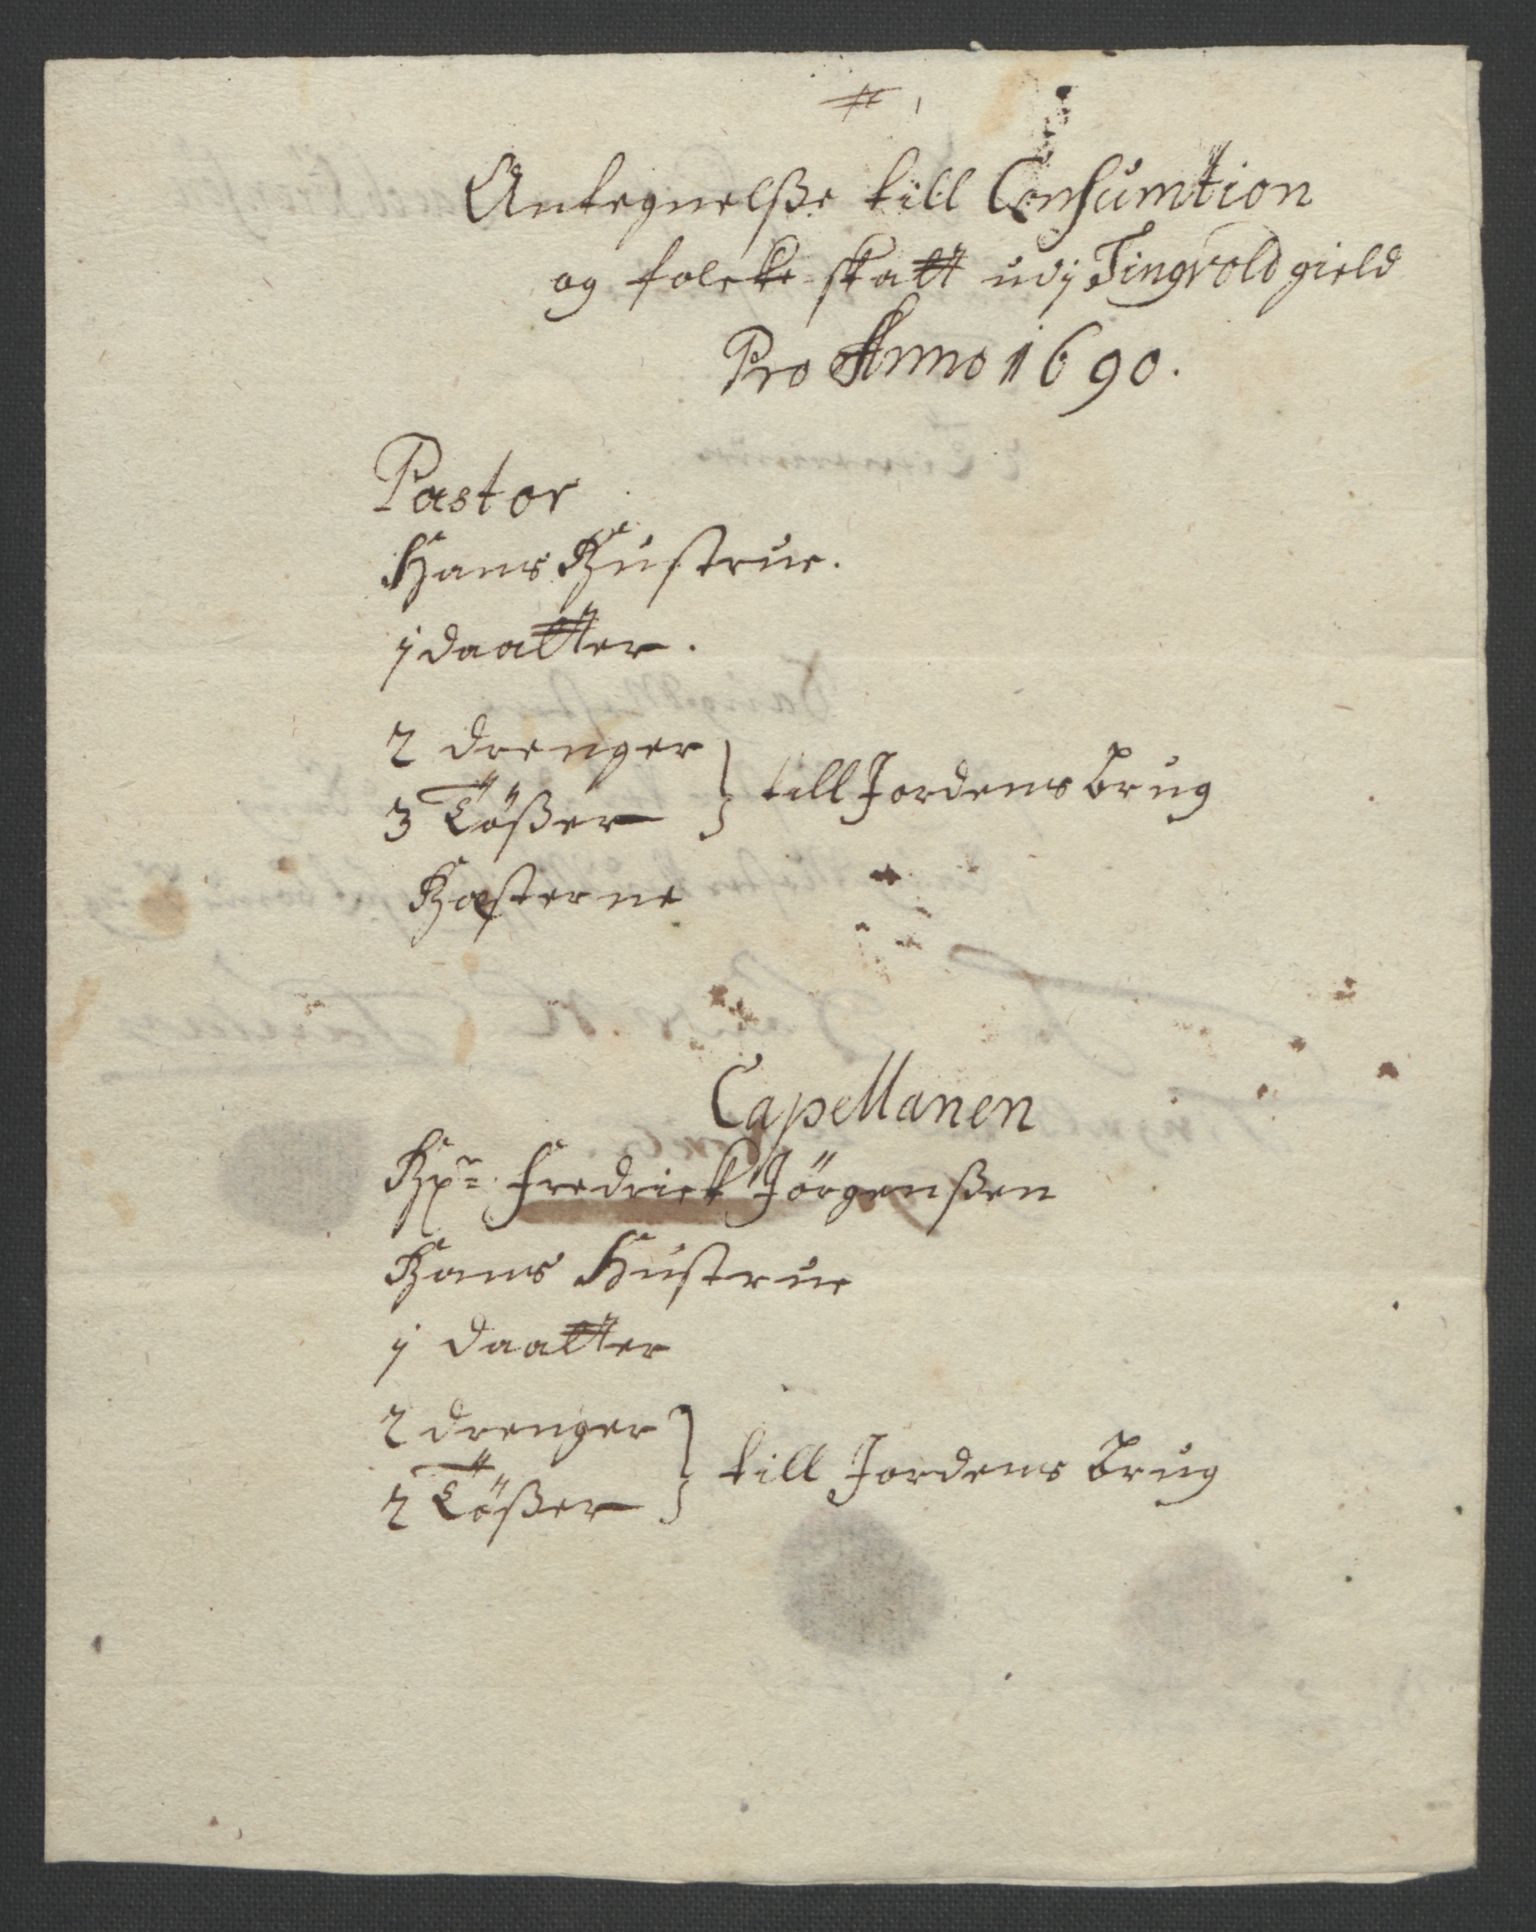 Antegnelsße till Consumtion
og folcke skatt udj Tingvold gield
Pro Anno 1690.
Pastor
Hans Hustrue.
j daatter.
2 drenger
3 Tößer } till Jordens brug
Hosterne
Capellanen
Hr: Fredrick Jörgenßen
Hans Hustrue
j daatter
2 drenger
2 Tößer } till Jordens brug